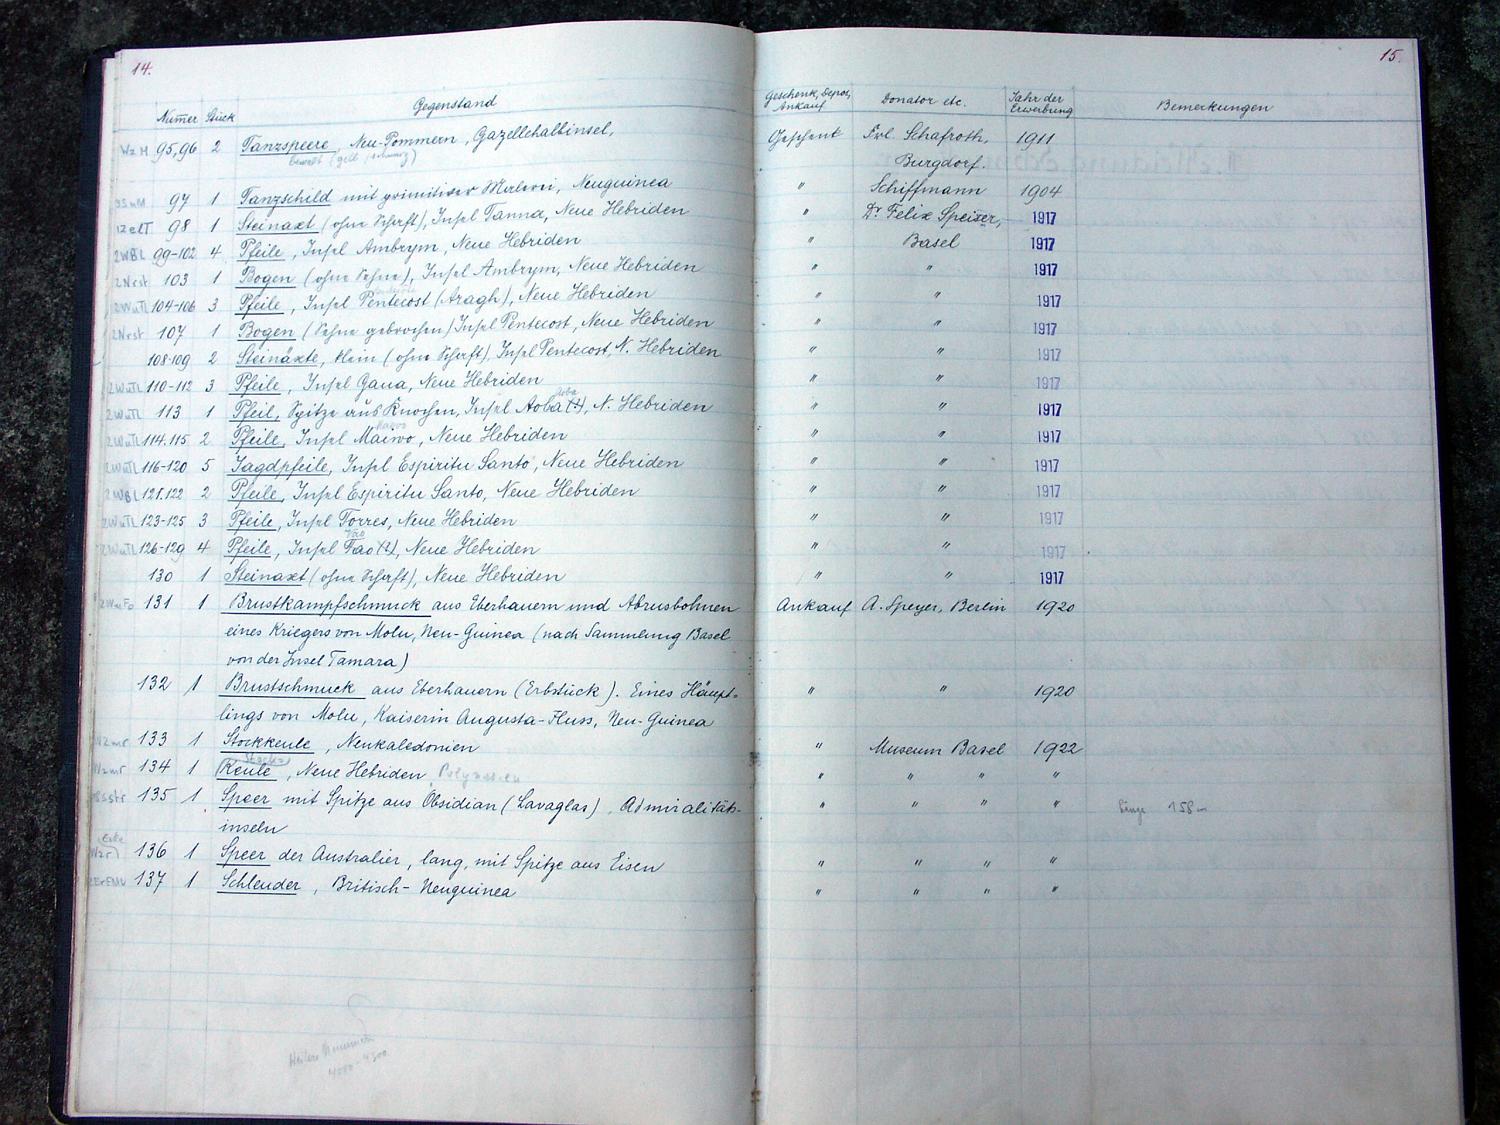 14.
15.
Numer Stück Gegenstand Geschenk, Depot, Ankauf Donator etc. Jahr der Erwerbung Bemerkungen
WzH 95,96 2 Tanzspeere, Neu-Pommern, Gazellehalbinsel, Geschent Frl. Schafroth, 1911
bemalt (gelb, schwarz) Burgdorf.
97 1 Tanzschild mit primitiver Malerei, Neuguinea " Schiffmann 1904
98 1 Steinaxt (ohne Schaft), Insel Tanna, Neue Hebriden " Dr Felix Speiser, 1917
2WBL 99-102 4 Pfeile, Insel Ambrym, Neue Hebriden " Basel 1917
2Nrst 103 1 Bogen (ohne Sehne), Insel Ambrym, Neue Hebriden " " 1917
2WuTL 104-106 3 Pfeile, Insel Pentecost (Aragh), Neue Hebriden " " 1917
2Nrst 107 1 Bogen (Sehne gebrochen) Insel Pentecost, Neue Hebriden " " 1917
108-109 2 Steinäxte, klein (ohne Schaft), Insel Pentecost, N. Hebriden " " 1917
2WuTL 110-112 3 Pfeile, Insel Gaua, Neue Hebriden " " 1917
2WuTL 113 1 Pfeil, Spitze aus Knochen, Insel Aoba (?), N. Hebriden " " 1917
2WuTL 114.115 2 Pfeile, Insel Maiwo, Neue Hebriden " " 1917
2WuTL 116-120 5 Jagdpfeile, Insel Espiritu Santo, Neue Hebriden " " 1917
2WBL 121.122 2 Pfeile, Insel Espiritu Santo, Neue Hebriden " " 1917
2WuTL 123-125 3 Pfeile, Insel Torres, Neue Hebriden " " 1917
2WuTL 126-129 4 Pfeile, Insel Tao (?), Neue Hebriden " " 1917
130 1 Steinaxt (ohne Schaft), Neue Hebriden " " 1917
131 1 Brustkampfschmuck aus Eberhauern und Abrusbohnen Ankauf A. Speyer, Berlin 1920
eines Kriegers von Molu, Neu-Guinea (nach Sammlung Basel
von der Insel Tamara)
132 1 Brustschmuck aus Eberhauern (Erbstück). Eines Häupt- " " 1920
lings von Molu, Kaiserin Augusta-Fluss, Neu-Guinea
133 1 Stockkeule, Neukaledonien " Museum Basel 1922
134 1 Keule, Neue Hebriden Polynesien " " " "
135 1 Speer mit Spitze aus Obsidian (Lavaglas). Admiralitäts- " " " " Länge 158
inseln
136 1 Speer der Australier, lang, mit Spitze aus Eisen " " " "
137 1 Schleuder, Britisch-Neuguinea " " " "